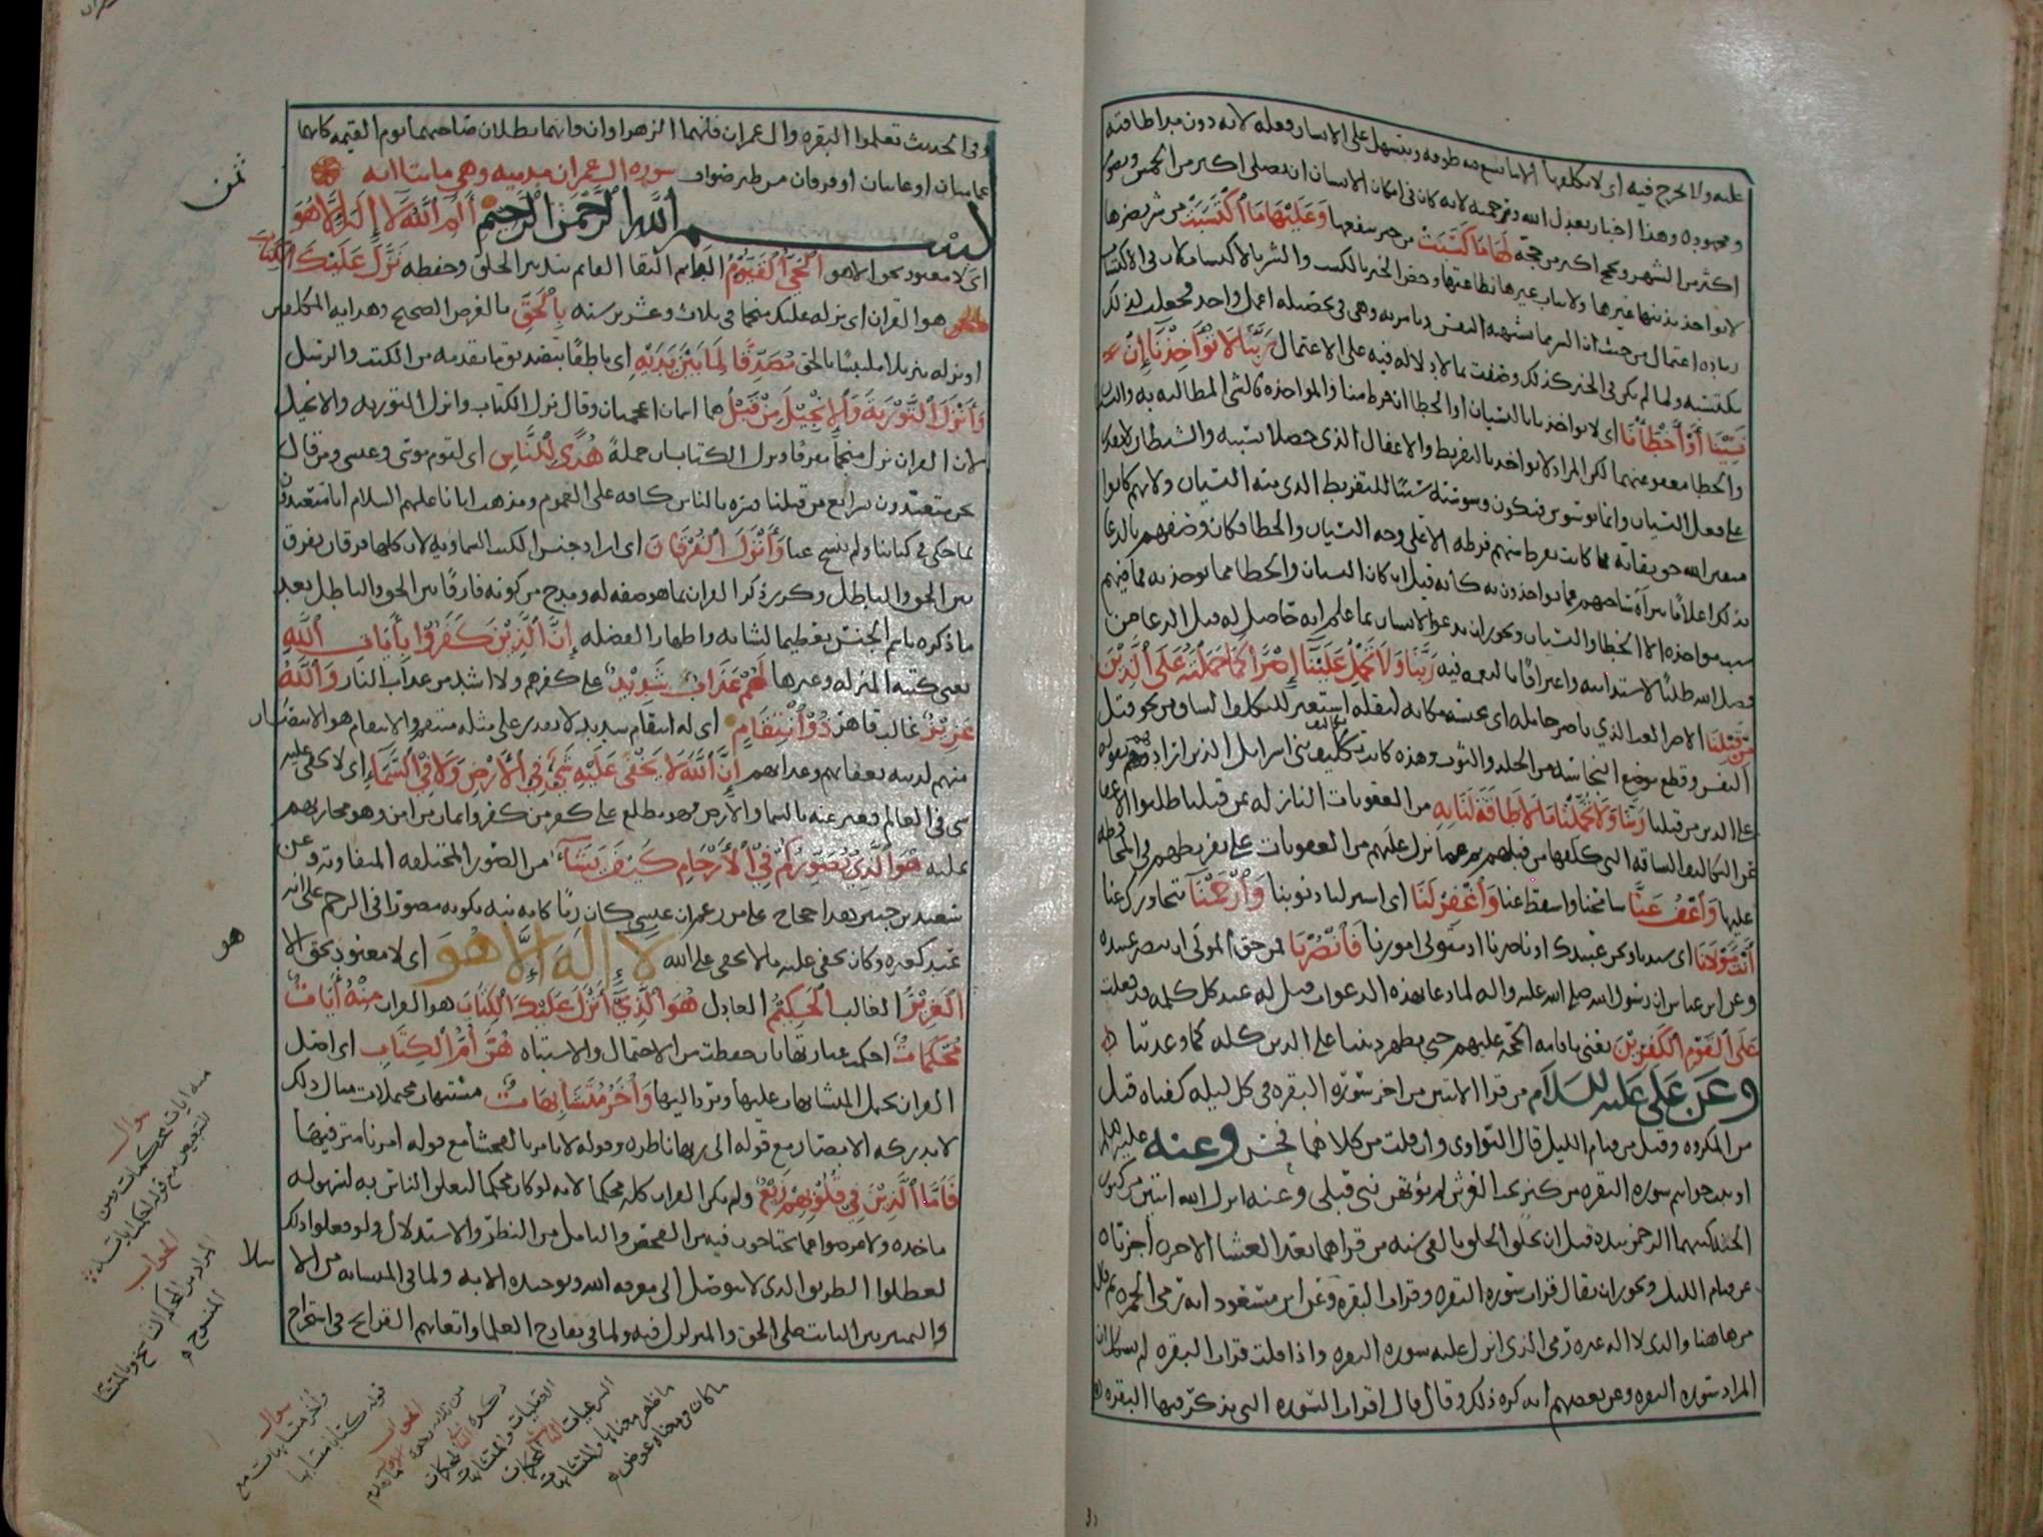 عليه ولا يحرج فيه اى لا يكلفها الا ما يتسع فيه طوقه ويتسهل على الانسان فعله لانه دون مدا طاقته
ومجهوده وهذا اخبار بعدل الله ورحمته لانه كان فى امكان الانسان ان يصلى اكثر من الخمس ويصوم
اكثر من الشهر ويحج اكثر من حجة لَهَا مَا كَسَبَتْ من خير ينفعها وَعَلَيْهَا مَا اكْتَسَبَتْ من شر يضرها
لا يواخذ بذنبها غيرها ولا يثاب غيرها بطاعتها وخص الخير بالكسب والشر بالاكتساب لان فى الاكتساب
زياده اعتمال من حيث ان الشر مما تشتهيه النفس وتامر به وهى فى تحصيله اعمل واحد فجعلت لذلك
مكتسبه ولما لم يكن فى الخير كذلك وصفت بما لا دلاله فيه على الاعتمال رَبَّنَا لَا تُؤَاخِذْنَا إِنْ
نَسِينَا أَوْ أَخْطَأْنَا اى لا تواخذنا بالنسيان او الخطا ان فرط منا
والخطا معفو عنهما لكن المراد لا تواخذنا بالتفريط والاغفال الذى حصلا بسببه والشيطان لا يقدر
على فعل النسيان وانما يوسوس فتكون وسوسته سببا للتفريط الذى منه النسيان ولانهم كانوا
متقين الله حق تقاته فما كانت تفرط منهم فرطه الا على وجه النسيان والخطا فكان وصفهم بالدعا
بذلك اعلامًا ببرآة ساحتهم عما يواخذون به كأنه قيل ان كان النسيان والخطا مما يوخذ به فما فيهم
سبب مواخذه الا الخطا والنسيان ويجوز ان يدعو الانسان بما علم انه حاصل له قبل الدعا من
فضل الله طلبًا لاستدامته واعترافًا بالنعمه فيه رَبَّنَا وَلَا تَحْمِلْ عَلَيْنَا إِصْرًا كَمَا حَمَلْتَهُ عَلَى الَّذِينَ
مِنْ قَبْلِنَا الاصر العب الذي ياصر حامله اى يحبسه مكانه لثقله استعير للتكليف الشاق من نحو قتل
النفس وقطع موضع النجاسه من الجلد والثوب وهذه كانت تكاليف بنى اسرايل
على الذين من قبلنا رَبَّنَا وَلَا تُحَمِّلْنَا مَا لَا طَاقَةَ لَنَا بِهِ من العقوبات النازله بمن قبلنا طلبوا الاعفا
عن التكاليف الشاقه التى كلفها من قبلهم ثم عما نزل عليهم من العقوبات على تفريطهم فى المحافظه
عليها وَاعْفُ عَنَّا سامحنا واسقط عنا وَاغْفِرْ لَنَا اى استر لنا ذنوبنا وَارْحَمْنَا
أَنْتَ مَوْلَانَا اى سيدنا ونحن عبيدك او ناصرنا او متولى امورنا فَانْصُرْنَا فمن حق المولى ان ينصر عبيده
وعن ابن عباس ان رسول الله صلى الله عليه واله لما دعا بهذه الدعوات قيل له عند كل كلمه قد فعلت
عَلَى الْقَوْمِ الْكَافِرِينَ يعنى باقامه الحجه عليهم حتى يظهر ديننا على الدين كله كما وعدتنا
وعن على عليه السلام من قرا الايتين من اخر سوره البقره فى كل ليله كفتاه قيل
من المكروه وقيل من قيام الليل قال النواوى وان قلت من كلاهما فحسن وعنه عليه السلام
اوتيت خواتيم سوره البقره من كنز تحت العرش لم يؤتهن نبى قبلى وعنه انزل الله ايتين من كنوز
الجنه كتبهما الرحمن بيده قبل ان يخلق الخلق بالفى سنه من قراهما بعد العشا الاخره اجزتاه
عن قيام الليل ويجوز ان يقال قرات سوره البقره وقرات البقره وعن ابن مسعود انه رمى الجمره ثم قال
من هاهنا والذى لا اله غيره رمى الذى انزل عليه سوره البقره واذا قلت قرات البقره لم يشكل ان
المراد سوره البقره وعن بعضهم انه كره ذلك وقال يقال قرات السوره التى يذكر فيها البقره
وفى الحديث تعلموا البقره وال عمران فانهما الزهراوان وانهما يظلان صاحبهما يوم القيمه كانهما
غمامتان او غيايتان او فرقان من طير صواف سوره ال عمران مدنيه وهى مايتا ايه
بسم الله الرحمن الرحيم الٓمٓ اللَّهُ لَا إِلَهَ إِلَّا هُوَ
اى لا معبود بحق الا هو الْحَيُّ الْقَيُّومُ الدايم البقا القايم بتدبير الخلق وحفظه نَزَّلَ عَلَيْكَ الْكِتَابَ
هو القران اى نزله عليك منجما فى ثلاث وعشرين سنه بِالْحَقِّ بالغرض الصحيح وهدايه المكلفين
او نزله تنزيلا ملتبسًا بالحق مُصَدِّقًا لِمَا بَيْنَ يَدَيْهِ اى ناطقًا بتصديق ما تقدمه من الكتب والرسل
وَأَنْزَلَ التَّوْرَاةَ وَالْإِنْجِيلَ مِنْ قَبْلُ هما اسمان اعجميان وقال نزل الكتاب وانزل التوريه والانجيل
لان القران نزل منجمًا مفرقًا ونزل الكتابان جملةً هُدًى لِلنَّاسِ اى لقوم موسى وعيسى ومن قال
نحن متعبدون بشرايع من قبلنا فسره بالناس كافه على العموم ومذهب ابائنا عليهم السلام انا متعبدون
بما حكى فى كتابنا ولم ينسخ عنا وَأَنْزَلَ الْفُرْقَانَ اى اراد جنس الكتب السماويه لان كلها فرقان يفرق
بين الحق والباطل وكرر ذكر القران بما هو صفه له ومدح من كونه فارقًا بين الحق والباطل بعد
ما ذكره باسم الجنس تعظيما لشانه واظهارا لفضله إِنَّ الَّذِينَ كَفَرُوا بِآيَاتِ اللَّهِ
يعنى كتبه المنزله وغيرها لَهُمْ عَذَابٌ شَدِيدٌ على كفرهم ولا اشد من عذاب النار وَاللَّهُ
عَزِيزٌ غالب قاهر ذُو انْتِقَامٍ اى له انتقام شديد لا يقدر على مثله منتقم والانتقام هو الانتصار
منهم لدينه بعقابهم وعذابهم إِنَّ اللَّهَ لَا يَخْفَى عَلَيْهِ شَيْءٌ فِي الْأَرْضِ وَلَا فِي السَّمَاءِ اى لا يخفى عليه
شى فى العالم فعبر عنه بالسما والارض فهو مطلع على كفر من كفر وايمان من امن وهو مجازيهم
عليه هُوَ الَّذِي يُصَوِّرُكُمْ فِي الْأَرْحَامِ كَيْفَ يَشَاءُ من الصور المختلفه المتفاوته وعن
سعيد بن جبير هذا حجاج على من زعم ان عيسى كان ربًا كانه نبه بكونه مصورا فى الرحم على انه
عبد كغيره وكان يخفى عليه ما لا يخفى على الله لَا إِلَهَ إِلَّا هُوَ اى لا معبود بحق الا
الْعَزِيزُ الغالب الْحَكِيمُ العادل هُوَ الَّذِي أَنْزَلَ عَلَيْكَ الْكِتَابَ هو القران مِنْهُ آيَاتٌ
مُحْكَمَاتٌ احكمت عبارتها بان حفظت من الاحتمال والاشتباه هُنَّ أُمُّ الْكِتَابِ اى اصل
القران تحمل المتشابهات عليها وترد اليها وَأُخَرُ مُتَشَابِهَاتٌ مشتبهات محتملات مثال ذلك
لا تدركه الابصار مع قوله الى ربها ناظره وقوله لا يامر بالفحشا مع قوله امرنا مترفيها
فَأَمَّا الَّذِينَ فِي قُلُوبِهِمْ زَيْغٌ ولم يكن القران كله محكما لانه لو كان محكما لتعلق الناس به لسهوله
ماخذه ولاعرضوا عما يحتاجون فيه من الفحص والتامل من النظر والاستدلال ولو فعلوا ذلك
لعطلوا الطريق الذى لا يتوصل الى معرفه الله وتوحيده الا به ولما فى المتشابه من الابتلا
والتمييز بين الثابت على الحق والمتزلزل فيه ولما فى تقادح العلما واتعابهم القرايح فى استخراج
ثمن
هو
سوال
الجواب
سوال
الجواب